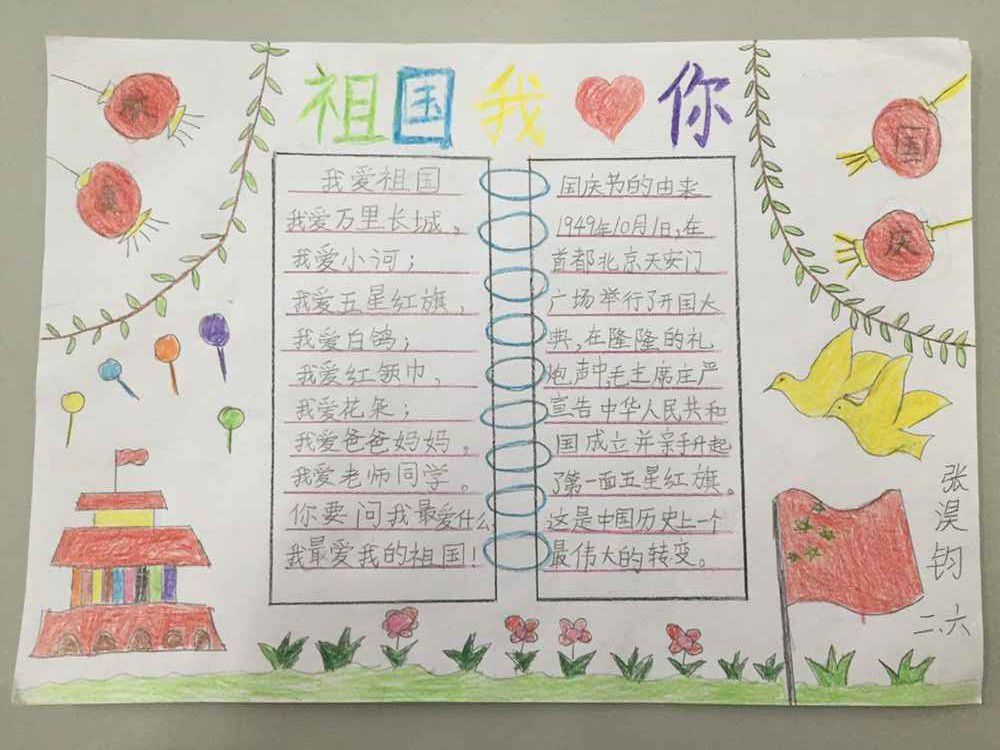 祖国我你
欢
喜
国
庆
我爱祖国
我爱万里长城，
我爱小河；
我爱五星红旗，
我爱白鸽；
我爱红领巾，
我爱花朵；
我爱爸爸妈妈，
我爱老师同学。
你要问我最爱什么
我最爱我的祖国！
国庆节的由来
1949年10月1日，在
首都北京天安门
广场举行了开国大
典，在隆隆的礼
炮声中毛主席庄严
宣告中华人民共和
国成立并亲手升起
了第一面五星红旗。
这是中国历史上一个
最伟大的转变。
张淏钧
二、六